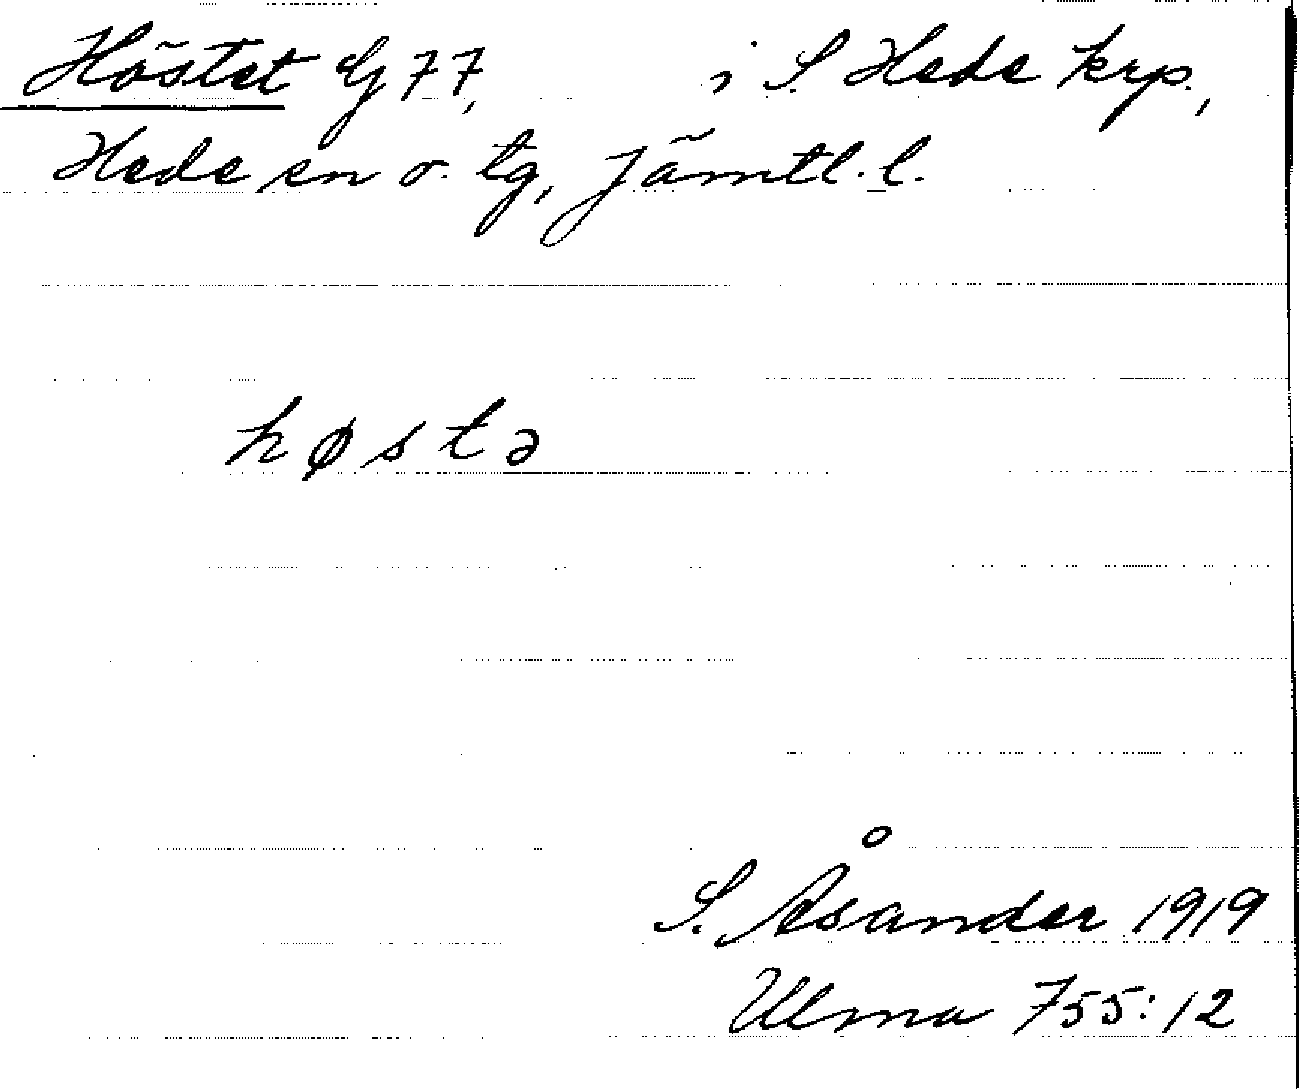 Höstet Lg 77, i S. Hede krp.,
Hede sn o. tg, Jämtl. l.
høstə
S. Åsander 1919
Ulma 755:12